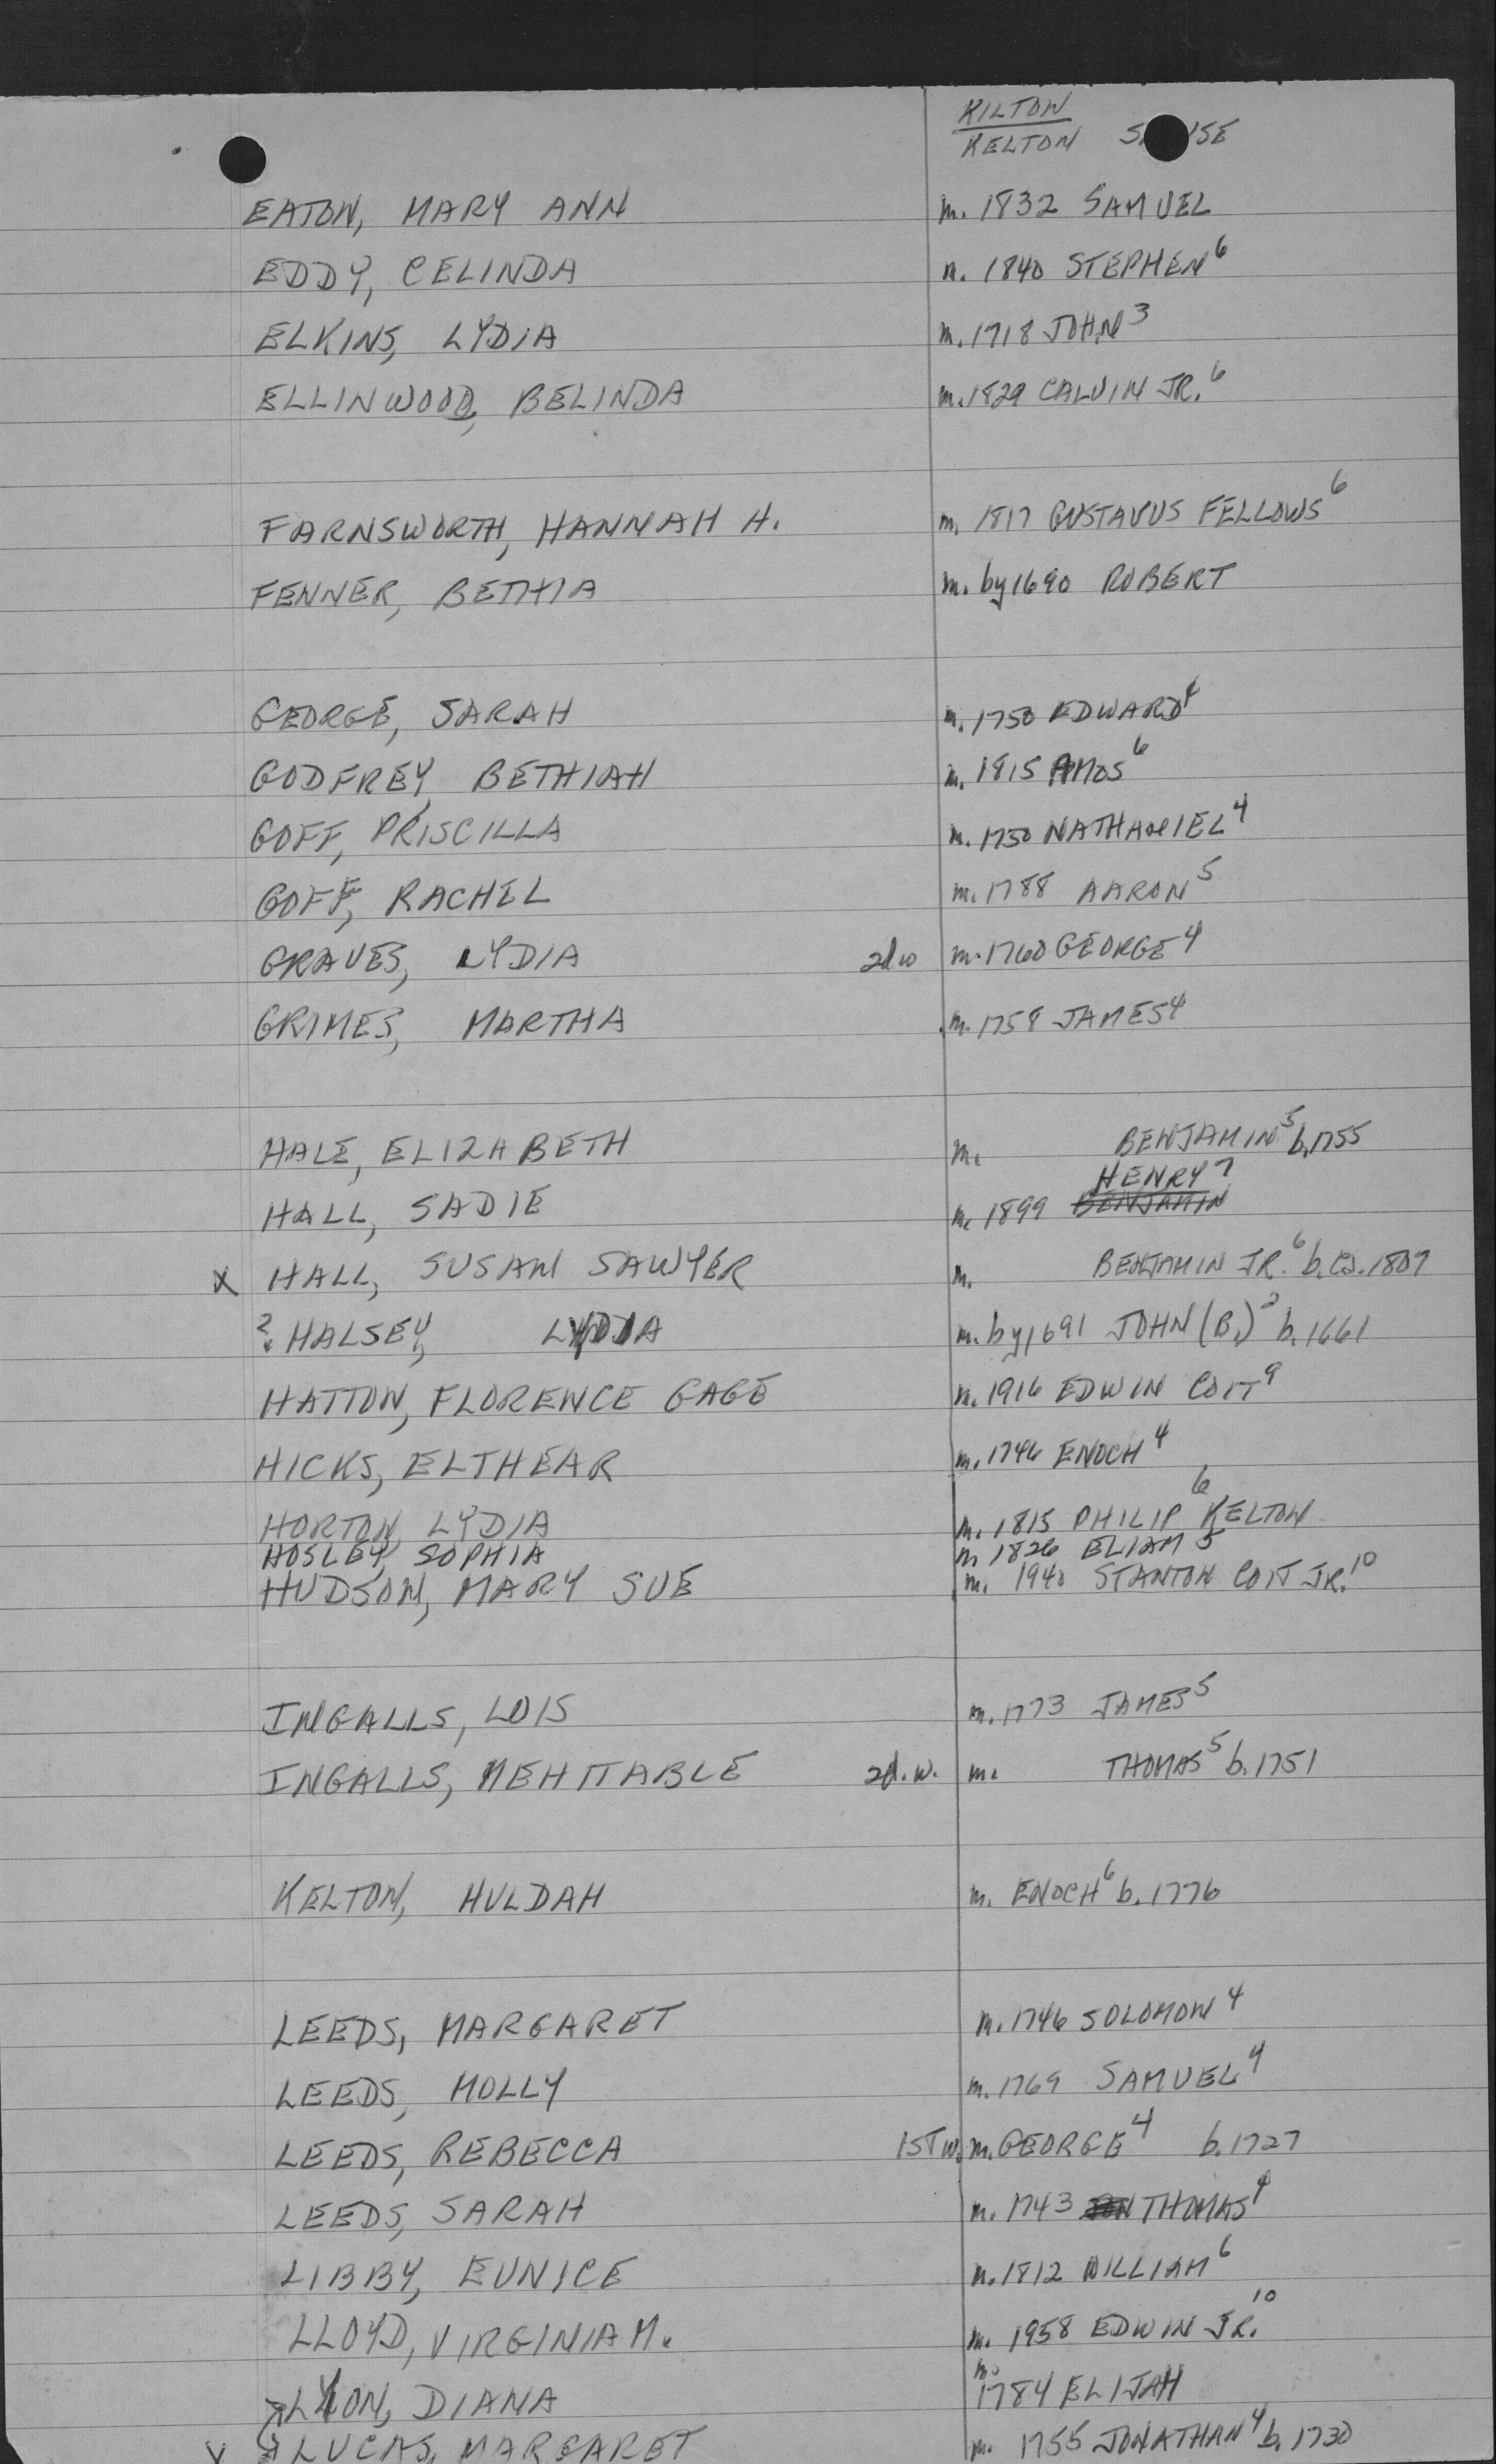 KILTON
KELTON S USE
EATON, MARY ANN m. 1832 SAMUEL
EDDY, CELINDA m. 1840 STEPHEN⁶
ELKINS, LYDIA m. 1718 JOHN³
ELLINWOOD, BELINDA m. 1829 CALVIN JR.⁶
FARNSWORTH, HANNAH H. m. 1817 GUSTAVUS FELLOWS⁶
FENNER, BETHIA m. by 1690 ROBERT
GEORGE, SARAH m. 1750 EDWARD⁴
GODFREY, BETHIAH m. 1815 AMOS⁶
GOFF, PRISCILLA m. 1750 NATHANIEL⁴
GOFF, RACHEL m. 1788 AARON⁵
GRAVES, LYDIA 2d w m. 1760 GEORGE⁴
GRIMES, MARTHA m. 1758 JAMES⁴
HALE, ELIZABETH m. BENJAMIN⁵ b. 1755
HALL, SADIE m. 1899 BENJAMIN HENRY⁷
x HALL, SUSAN SAWYER m. BENJAMIN JR.⁶ b. ca. 1807
? HALSEY, LYDIA m. by 1691 JOHN (B.)² b. 1661
HATTON, FLORENCE GAGE m. 1916 EDWIN COIT⁹
HICKS, ELTHEAR m. 1746 ENOCH⁴
HORTON, LYDIA m. 1815 PHILIP⁶ KELTON
HOSLEY, SOPHIA m. 1826 ELIAM⁵
HUDSON, MARY SUE m. 1940 STANTON COIT JR.¹⁰
INGALLS, LOIS m. 1773 JAMES⁵
INGALLS, MEHITABLE 2d. w. m. THOMAS⁵ b. 1751
KELTON, HULDAH m. ENOCH⁶ b. 1776
LEEDS, MARGARET m. 1746 SOLOMON⁴
LEEDS, MOLLY m. 1769 SAMUEL⁴
LEEDS, REBECCA 1ST w. m. GEORGE⁴ b. 1727
LEEDS, SARAH m. 1743 THOMAS⁴
LIBBY, EUNICE m. 1812 WILLIAM⁶
LLOYD, VIRGINIA M. m. 1958 EDWIN JR.¹⁰
LYON, DIANA m. 1784 ELIJAH
LUCAS, MARGARET m. 1755 JONATHAN⁴ b. 1730